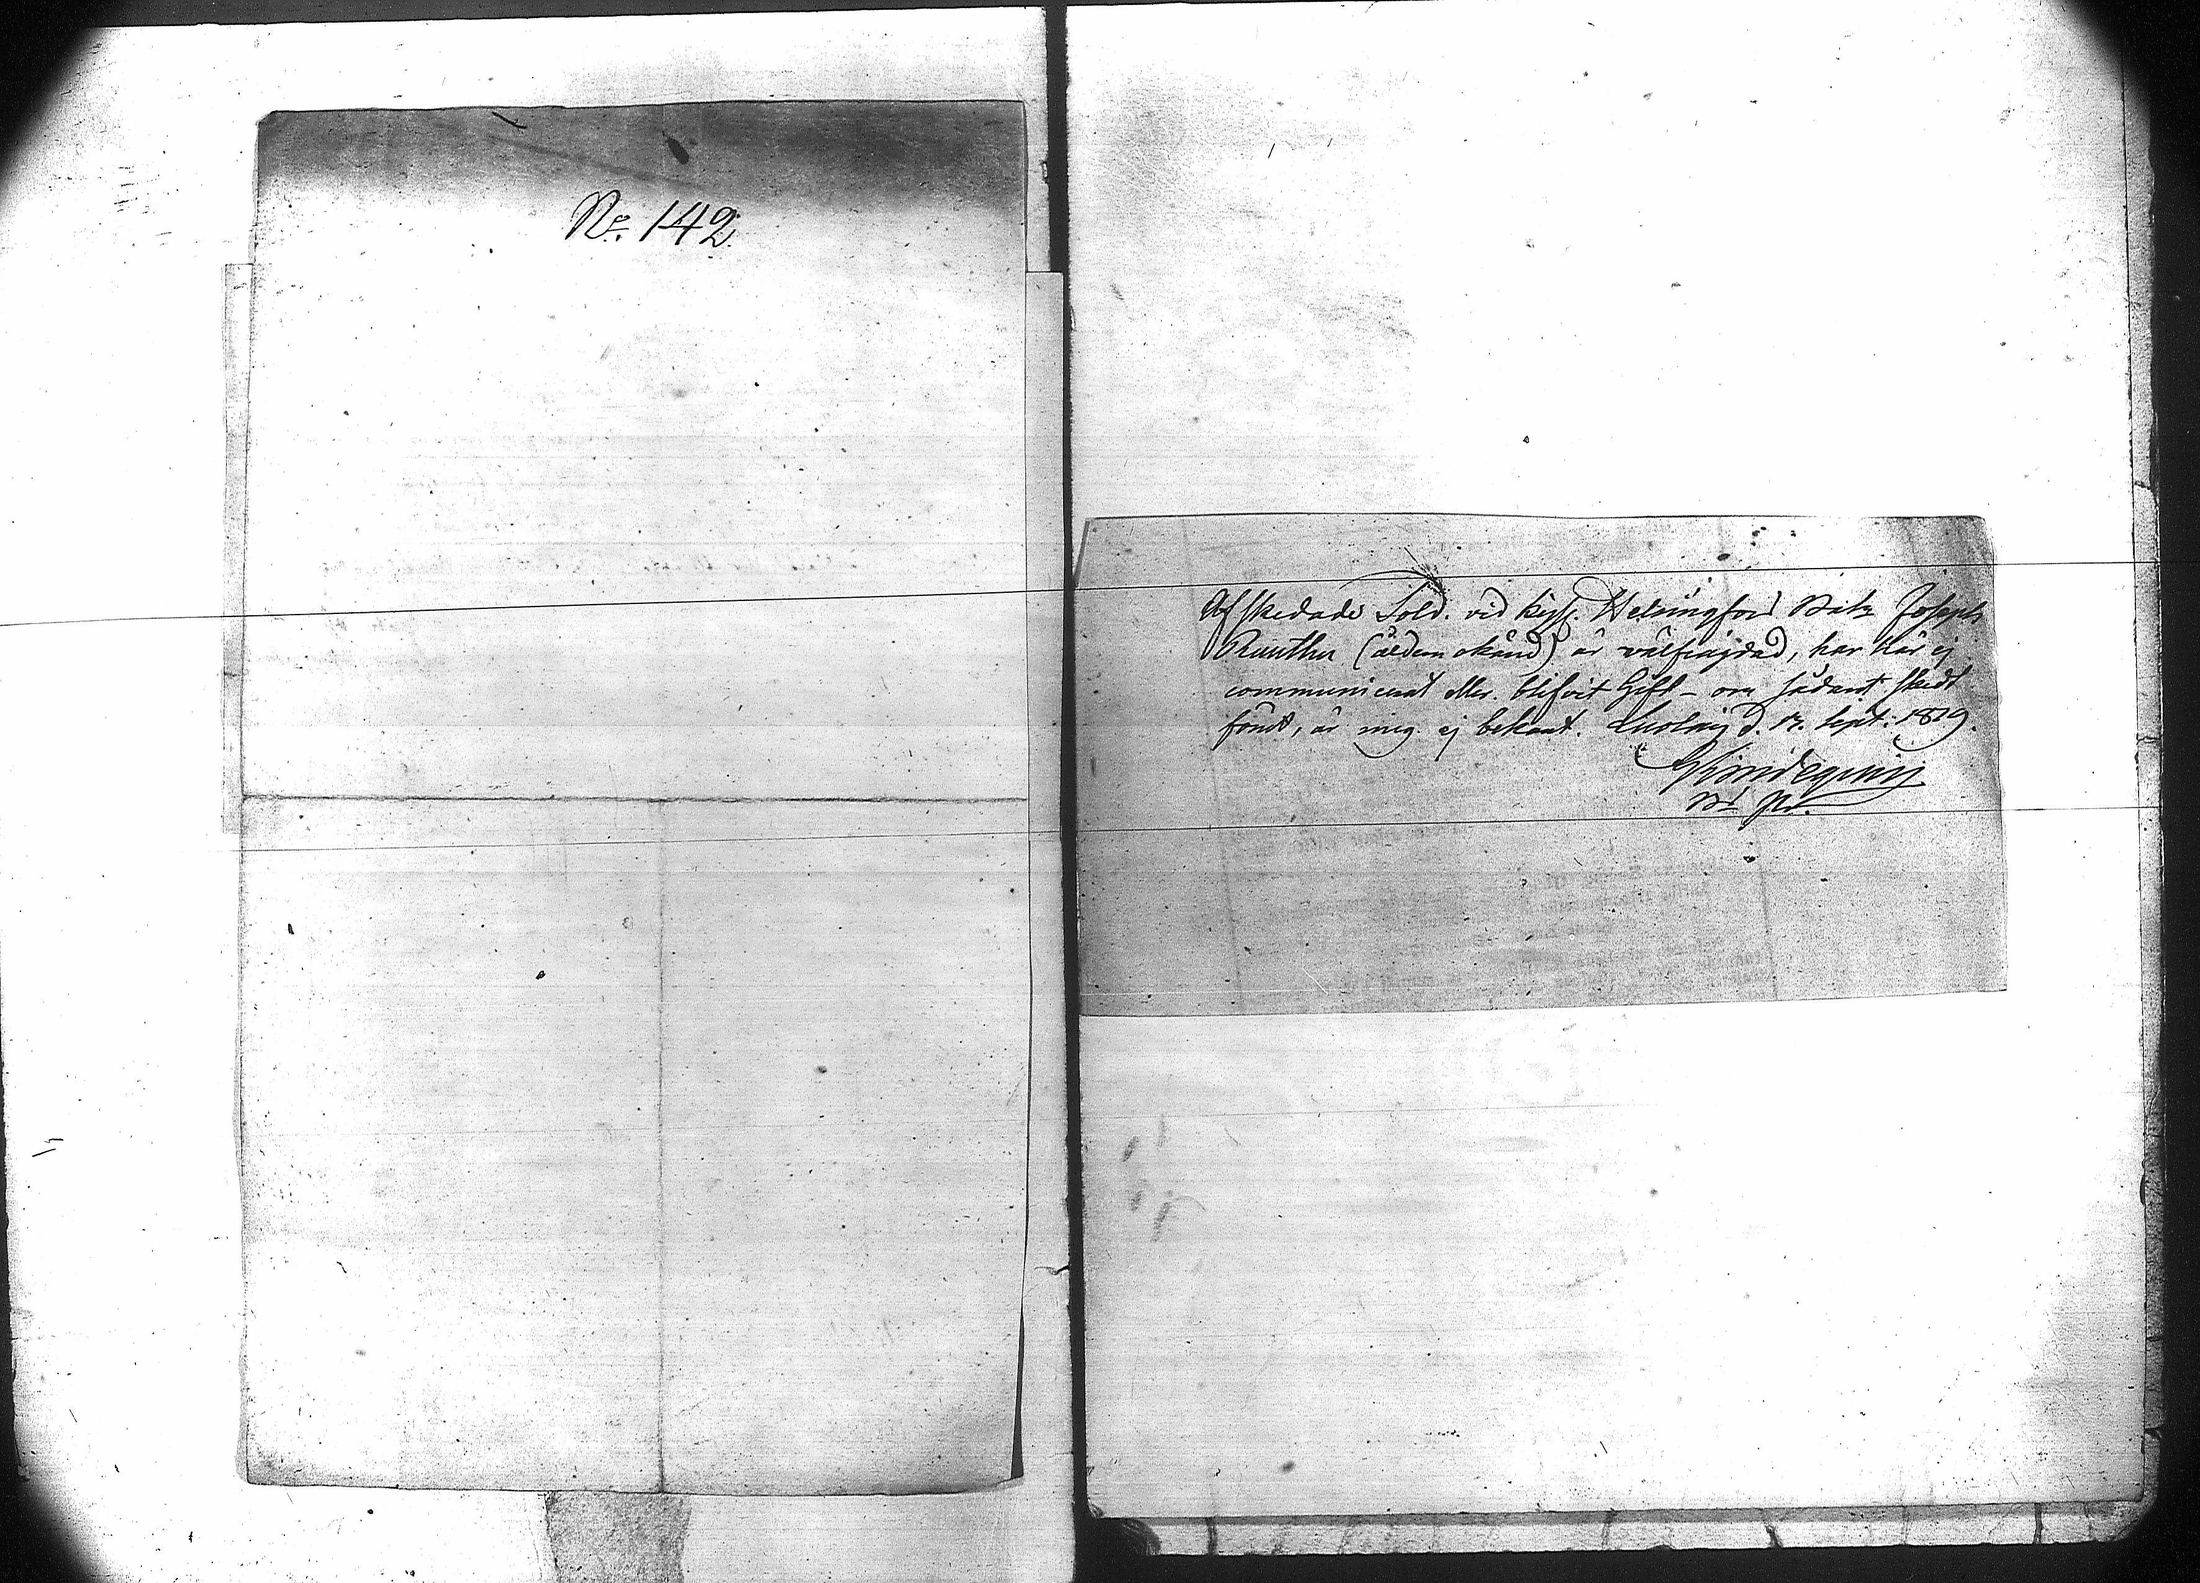 No. 142
Afskedade Sold. vid kejs. Helsingfors Bat. Joseph
(ålder okänd) är välfräjdad, har här ej
communicerat eller blifvit Gift – om sådant skedt
förut, är mig ej bekant. d. 12. Sept: 1819.